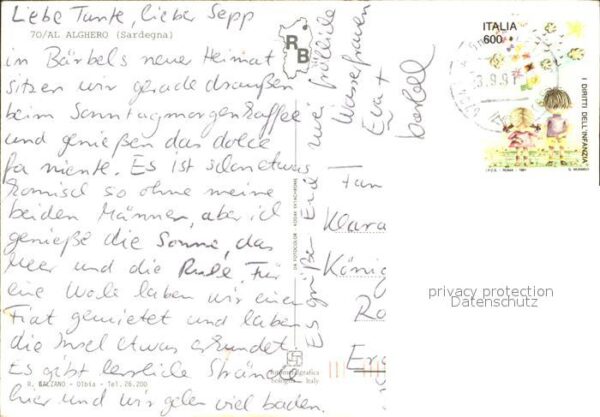 Liebe Tante, lieber Sepp
70/AL ALGHERO (Sardegna)
in Bärbels neuer Heimat
sitzen wir gerade draußen
beim Sonntagmorgenkaffee
und genießen das dolce
far niente. Es ist schon etwas
komisch so ohne meine
beiden Männer, aber ich
genieße die Sonne, das
Meer und die Ruhe. Für
eine Woche haben wir einen
Fiat gemietet und haben
die Insel etwas erkundet.
Es gibt herrliche Strände
hier und wir gehen viel baden.
R. BALZANO - Olbia - Tel. 26.200
Es grüßen Euch zwei fröhliche
Wasserfrauen
Eva +
Bärbel
R
B
DA FOTOCOLOR - KODAK EKTACHROME
Bologna - Italy
Fam
Klara
König
ITALIA
600
I DIRITTI DELL'INFANZIA
I.P.Z.S. - ROMA - 1991
9.91
privacy protection
Datenschutz